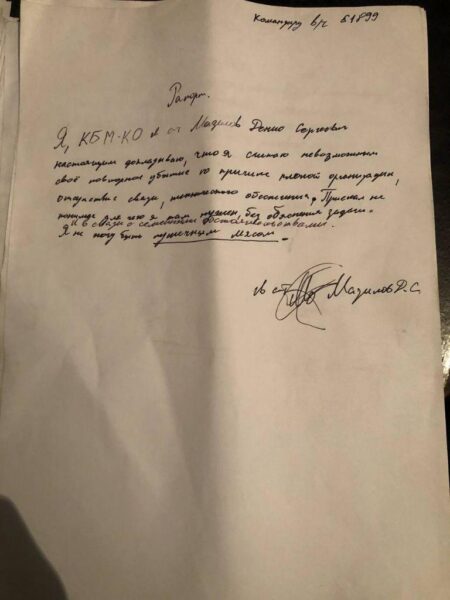 Командиру в/ч 51899
Рапорт.
Я, КБМ-КО Мазилов Денис Сергеевич
настоящим докладываю, что я считаю невозможным
своё повторное убытие по причине плохой организации,
отсутствие связи, технического обеспечения. Приказ не
для чего я там нужен, без объяснения задачи.
и в связи с семейными обстоятельствами.
Я не могу быть пушечным мясом.
Мазилов Д.С.